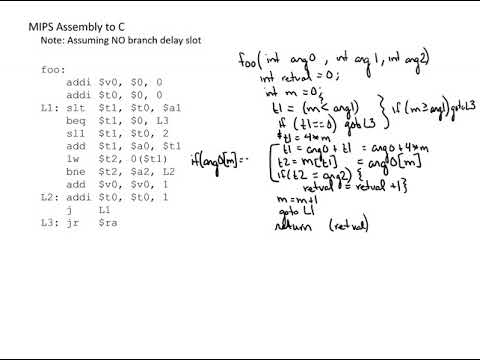 MIPS Assembly to C
Note: Assuming NO branch delay slot
foo:
addi $v0, $0, 0
addi $t0, $0, 0
L1: slt $t1, $t0, $a1
beq $t1, $0, L3
sll $t1, $t0, 2
add $t1, $a0, $t1
lw $t2, 0($t1)
bne $t2, $a2, L2
add $v0, $v0, 1
L2: addi $t0, $t0, 1
j L1
L3: jr $ra
foo( int arg0 , int arg1, int arg2)
int retval = 0;
int m = 0;
t1 = (m < arg1)
if (t1==0) goto L3
} if (m ≥ arg1) goto L3
t1 = 4*m
t1 = arg0 + t1 = arg0 + 4*m
t2 = m[t1] = arg0[m]
if(arg0[m] =..
if(t2 = arg2) {
retval = retval +1}
m = m+1
goto L1
return (retval)